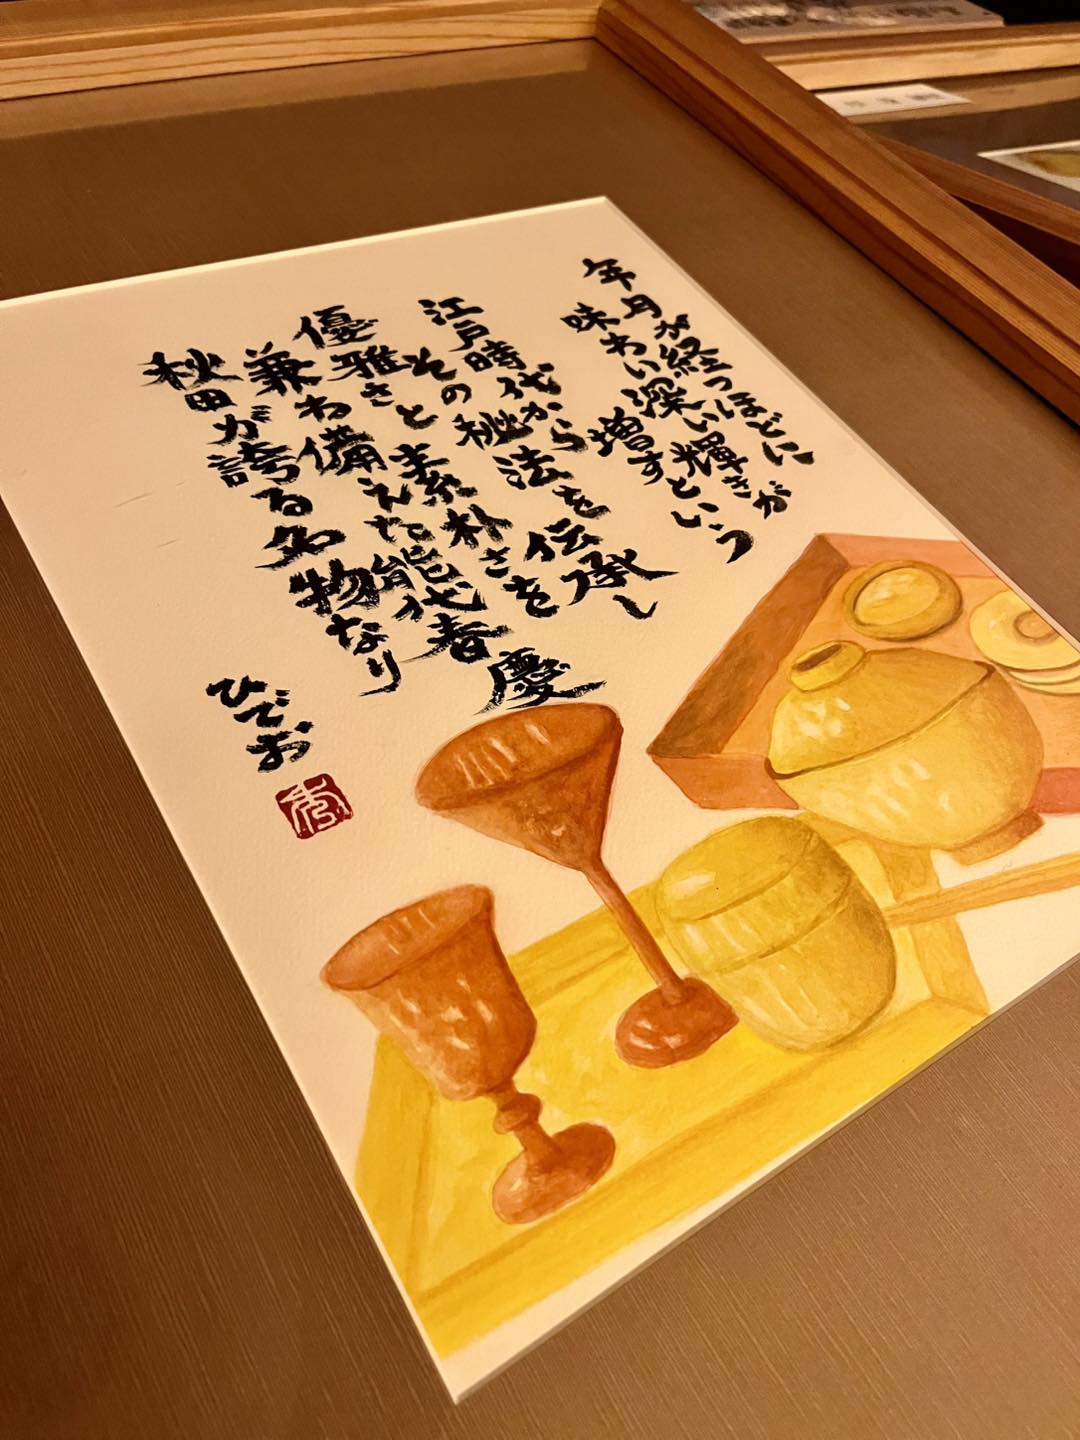 年月が経つほどに
味わい深い輝きが
増すという
江戸時代から
その秘法を伝承し
優雅さと素朴さを
兼ね備えた能代春慶
秋田が誇る名物なり
ひでお
秀